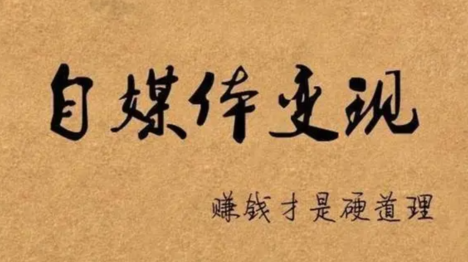 自媒体变现
赚钱才是硬道理